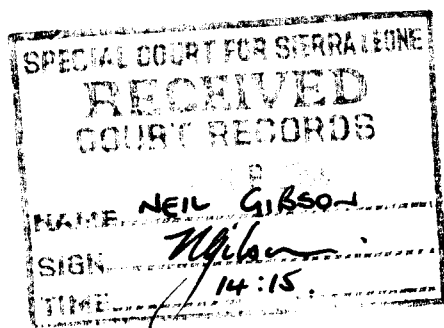 SPECIAL COURT FOR SIERRA LEONE
RECEIVED
COURT RECORDS
NAME NEIL GIBSON
SIGN NGibson
TIME 14:15.